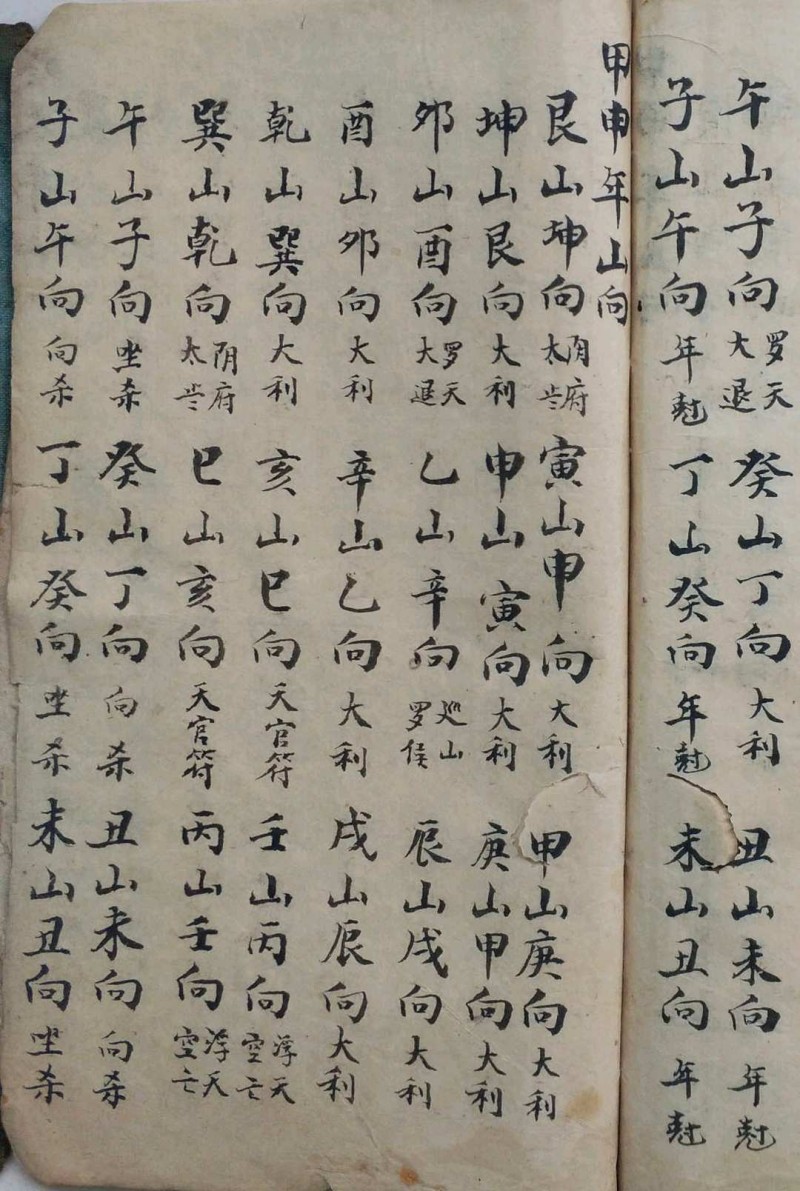 午山子向 罗天大退 癸山丁向 大利 丑山未向 年尅
子山午向 年尅 丁山癸向 年尅 未山丑向 年尅
甲申年山向
艮山坤向 阴府太岁 寅山申向 大利 甲山庚向 大利
坤山艮向 大利 申山寅向 大利 庚山甲向 大利
夘山酉向 罗天大退 乙山辛向 巡山罗侯 辰山戌向 大利
酉山夘向 大利 辛山乙向 大利 戌山辰向 大利
乾山巽向 大利 亥山巳向 天官符 壬山丙向 浮天空亡
巽山乾向 阴府太岁 巳山亥向 天官符 丙山壬向 浮天空亡
午山子向 坐杀 癸山丁向 向杀 丑山未向 向杀
子山午向 向杀 丁山癸向 坐杀 未山丑向 坐杀